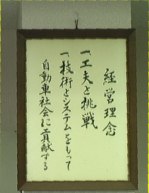 経営理念
一、工夫と挑戦
一、技術とシステムをもって
自動車社会に貢献する